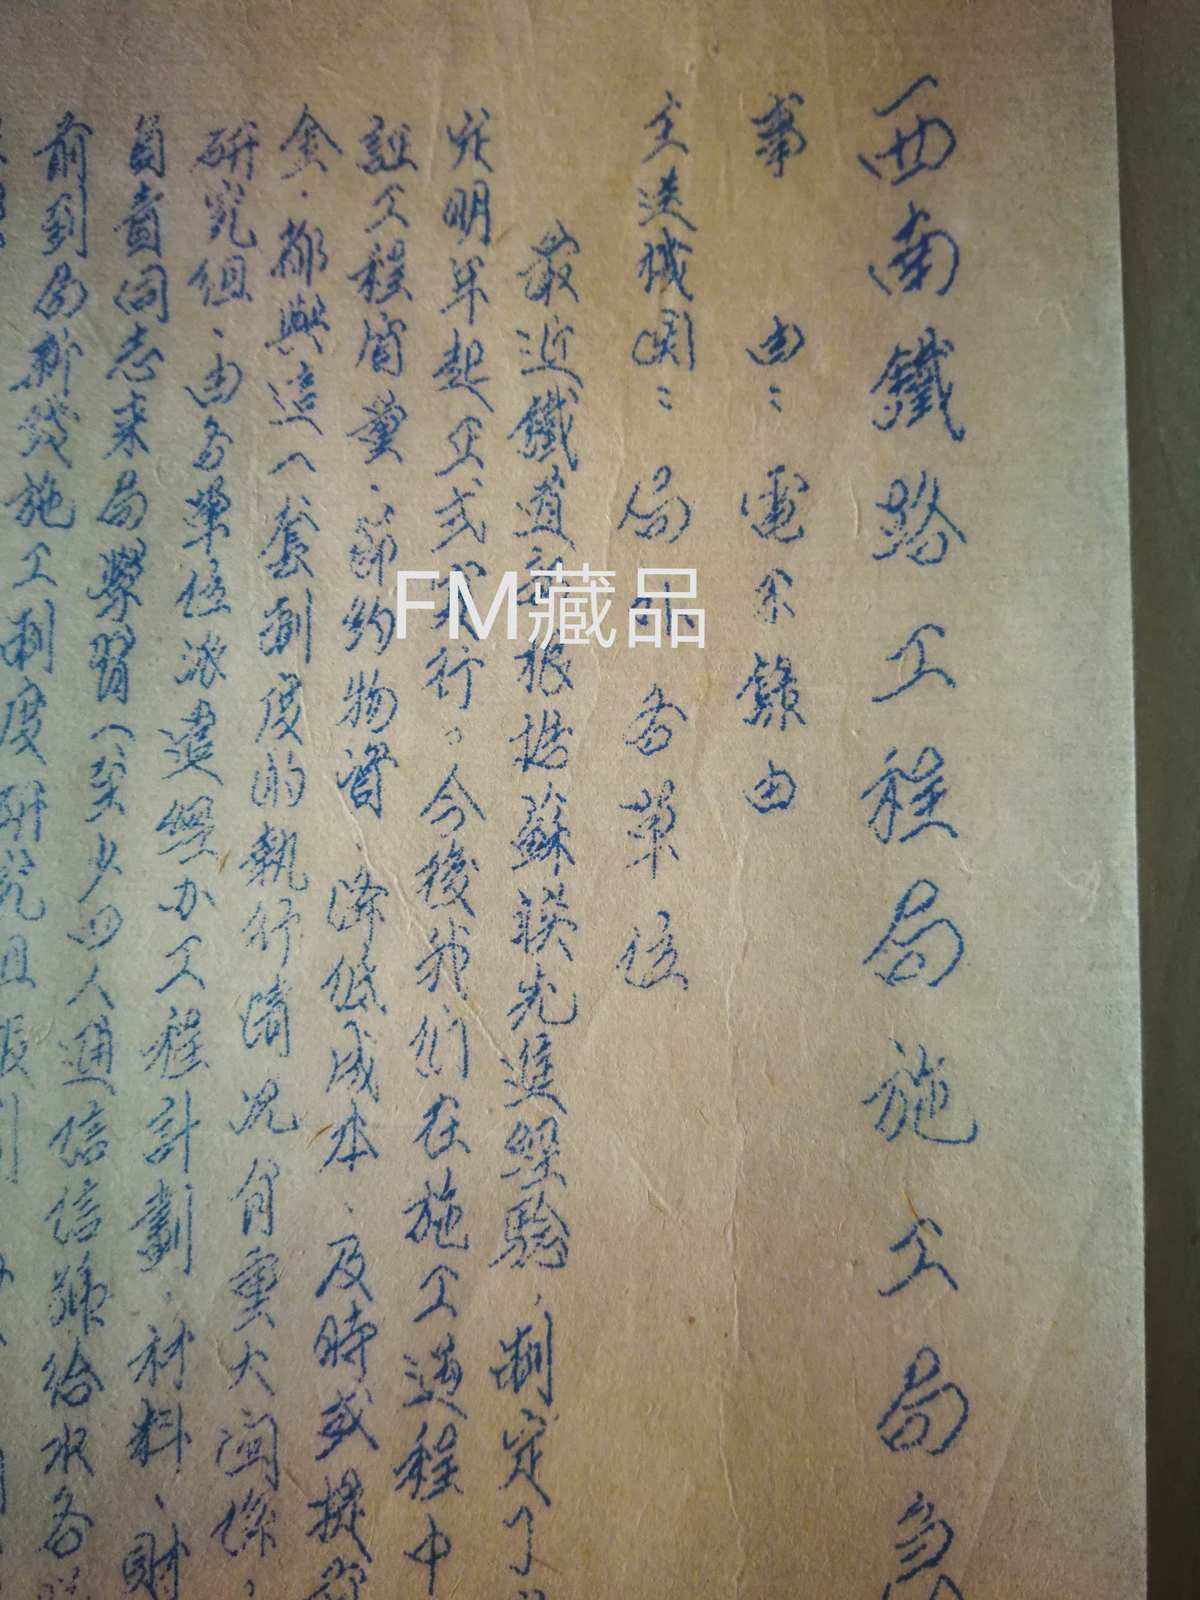 西南鐵路工程局施工局急
事　由：電不錄由
主送機関：局外各單位
最近鐵道部根据蘇联先進經驗，制定了
明年起正式实行。今後我们在施工过程中
証工程質量、節約物資、降低成本、及時或提
金，都與這一套制度的執行情况有重大関係，
研究組，由各單位派遣經办工程計劃、材料、財
負責同志来局學習（至少四人通信信號給水各
前到局新綫施工制度研究組報到
FM藏品